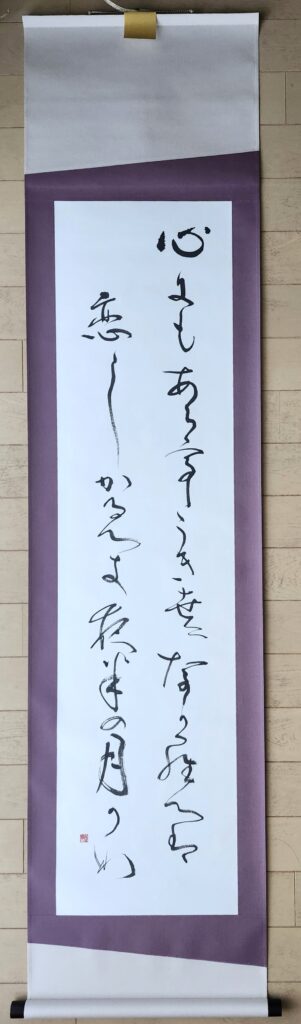 心にもあらてうき世になからへは
恋しかるへき夜半の月かな